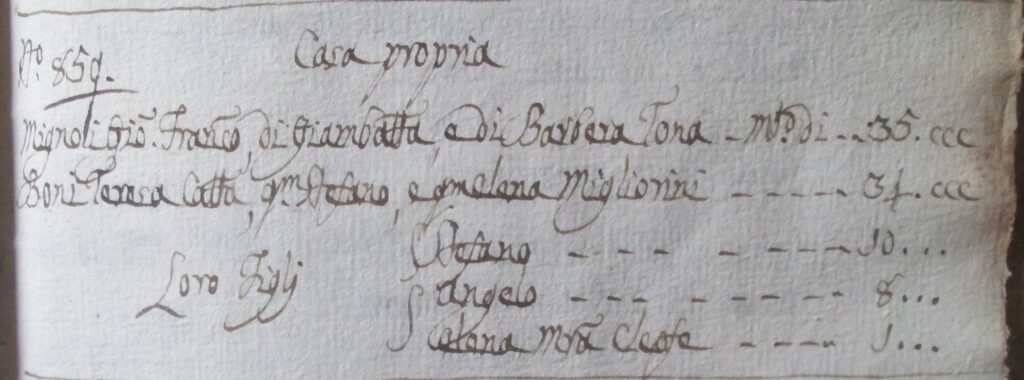 N.º 859.
Casa propria
Mignoli Gio. Franco, di Giambatta, e di Barbera Tona - Mto. di - - 35. ccc
Boni Teresa Catta, qm Stefano, e qm Elena Migliorini - - - - - 34. ccc
Stefano - - - - - - - 10...
Loro Figlj Angelo - - - - - - - - 8...
Elena Mra Cleofe - - - - 1...